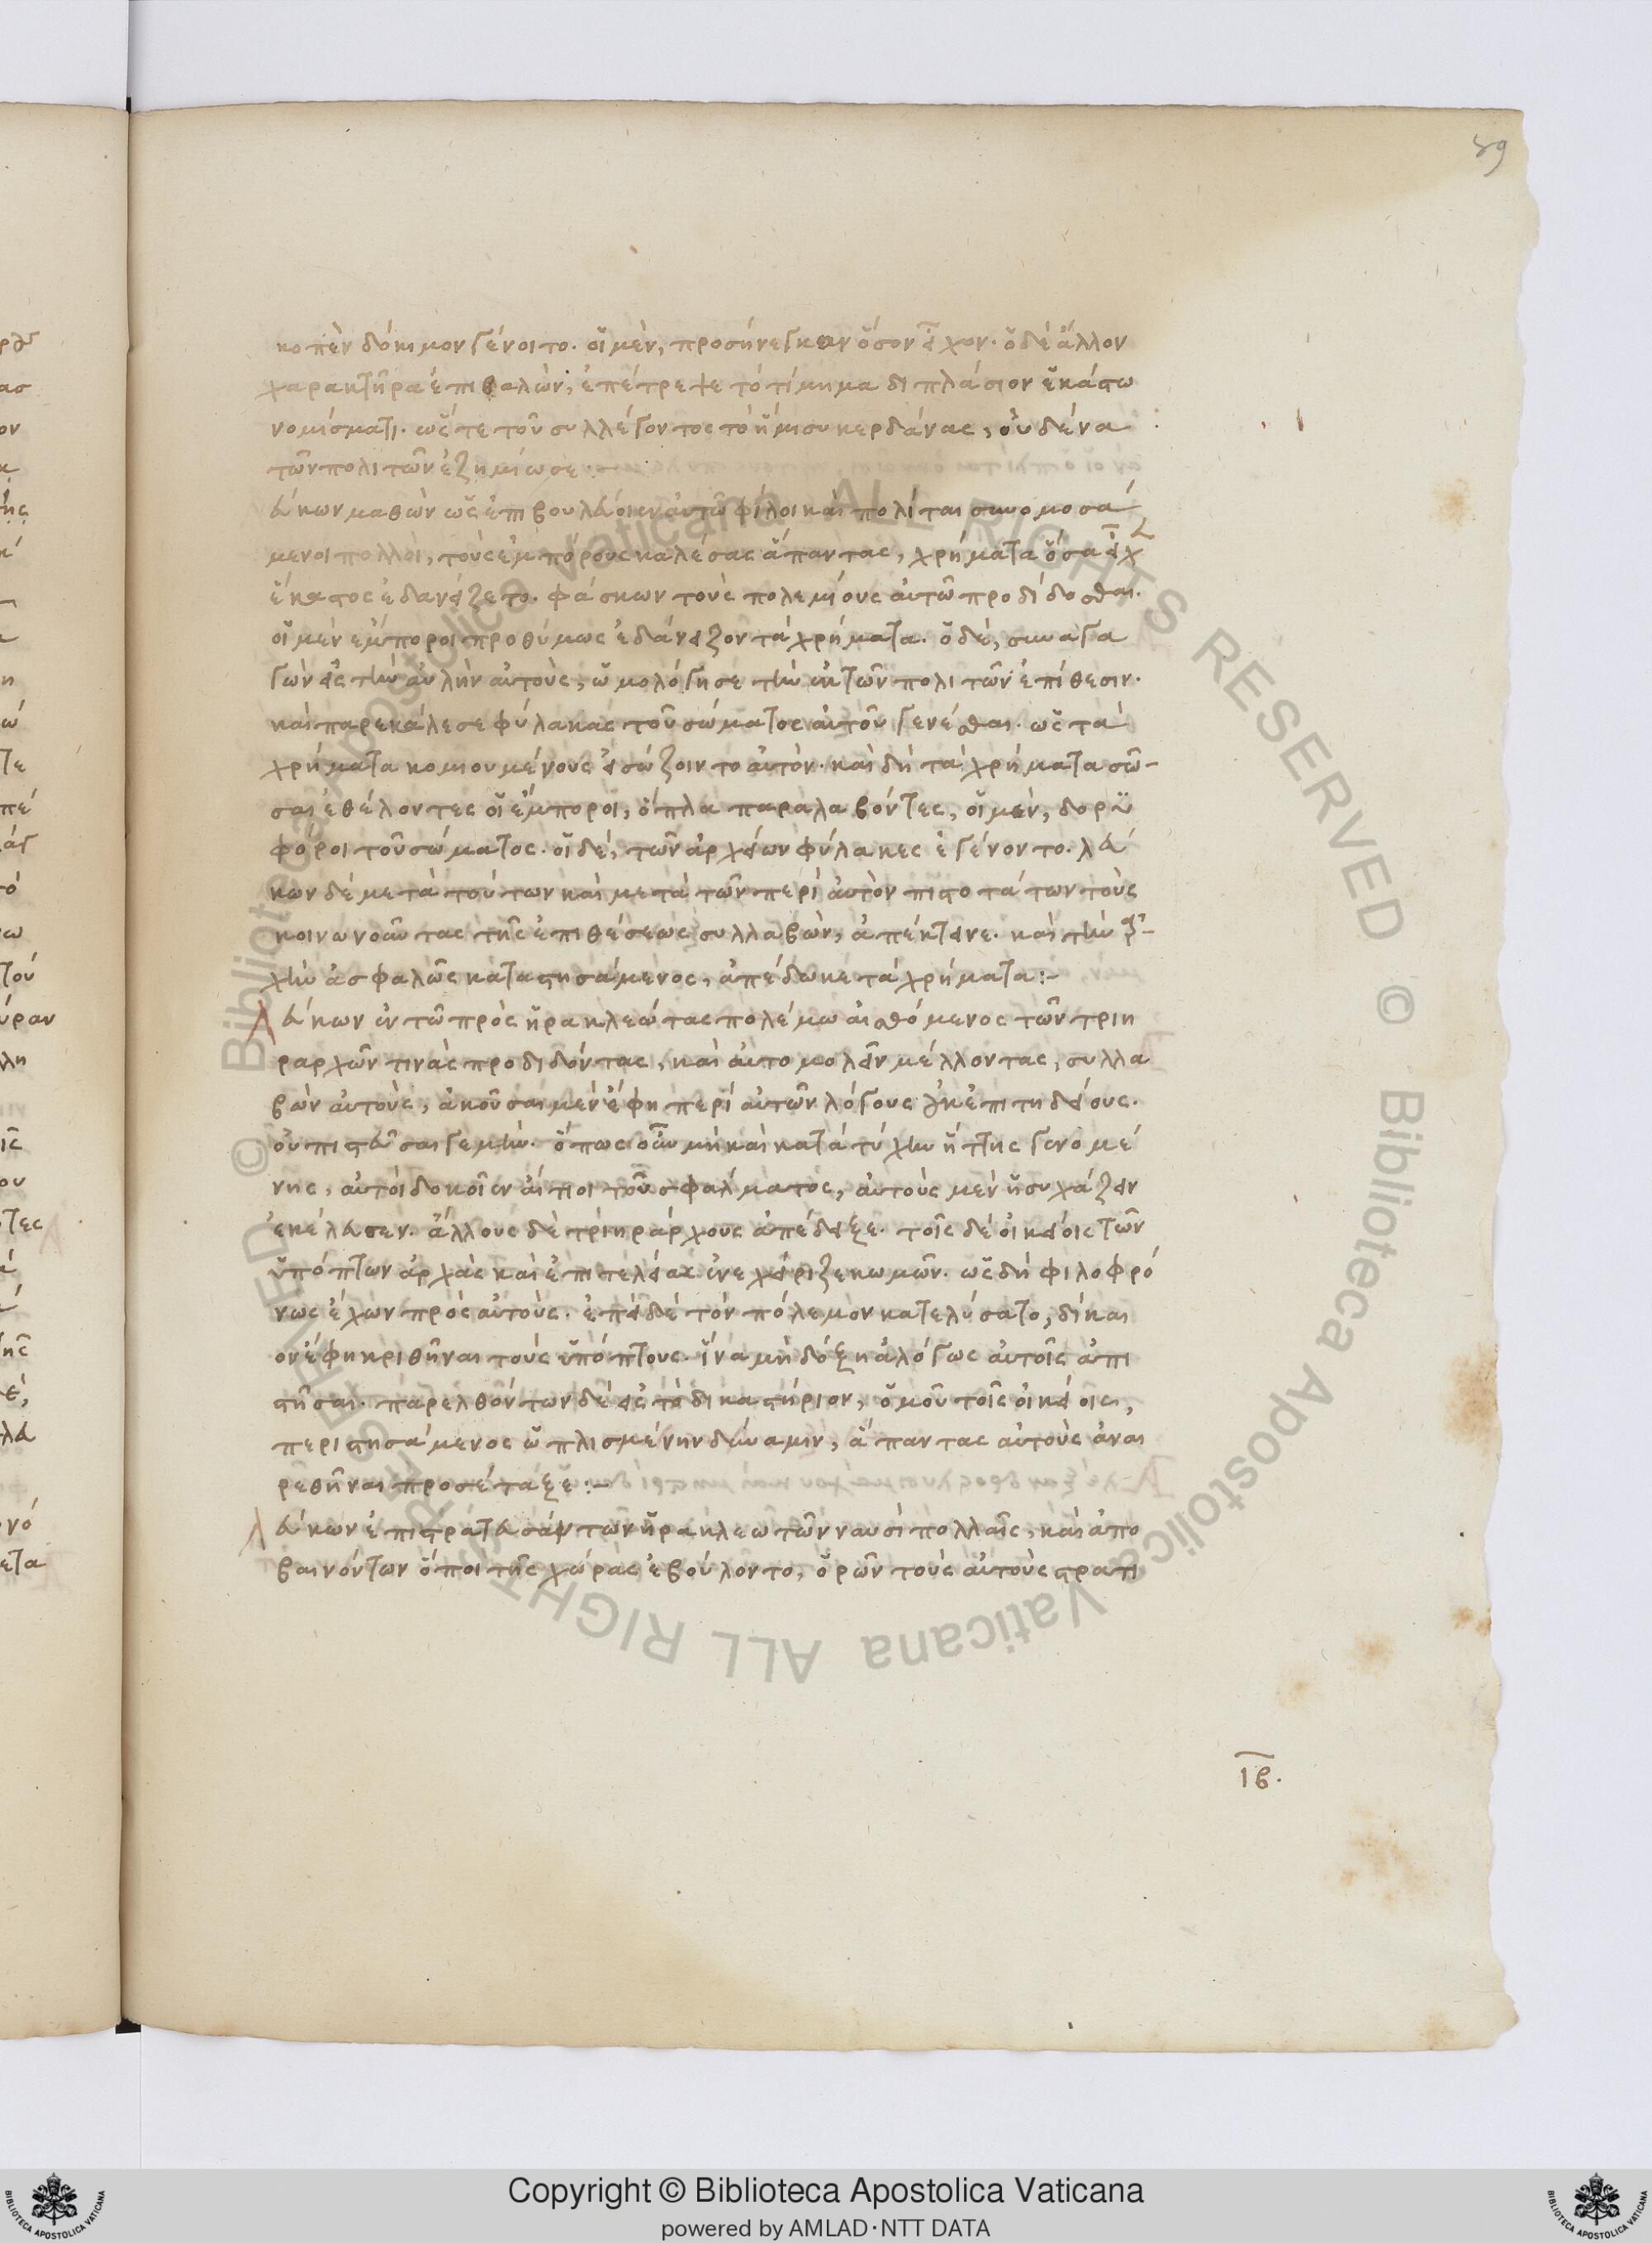 59
κοπὲν δόκιμον γένοιτο. οἱ μὲν, προσήνεγκαν ὅσον εἶχον. ὁ δὲ ἄλλον
χαρακτῆρα ἐπιβαλὼν, ἐπέτρεψε τὸ τίμημα διπλάσιον ἑκάστω
νομίσματι. ὥστε τοῦ συλλέγοντος τὸ ἥμισυ κερδάνας, οὐδένα
τῶν πολιτῶν ἐζημίωσε
εύκων μαθὼν ὡς ἐπιβουλεύοιεν αὐτῶ φίλοι καὶ πολίται συνομοσά
μενοι πολλοὶ, τοὺς ἐμπόρους καλέσας ἅπαντας, χρήματα ὅσα εἶχε
ἕκαστος ἐδανείζετο. φάσκων τοὺς πολεμίους αὐτῶ προδίδοσθαι.
οἱ μὲν ἔμποροι προθύμως ἐδάνειζον τὰ χρήματα. ὁ δὲ, συναγα
γὼν εἰς τὴν αὐλὴν αὐτοὺς, ὡμολόγησε τὴν ἐκ τῶν πολιτῶν ἐπίθεσιν.
καὶ παρεκάλεσε φύλακας τοῦ σώματος αὐτοῦ γενέσθαι. ὡς τὰ
χρήματα κομιουμένους εἰ σώζοιντο αὐτόν. καὶ δὴ τὰ χρήματα σῶ-
σαι ἐθέλοντες οἱ ἔμποροι, ὅπλα παραλαβόντες, οἱ μὲν, δορυ
φόροι τοῦ σώματος. οἱ δὲ, τῶν ἀρχείων φύλακες ἐγένοντο. λεύ
κων δὲ μετὰ τούτων καὶ μετὰ τῶν περὶ αὐτὸν πιστοτάτων τοὺς
κοινωνοῦντας τῆς ἐπιθέσεως συλλαβὼν, ἀπέκτεινε. καὶ τὴν ἀρ-
χὴν ἀσφαλῶς καταστησάμενος, ἀπέδωκε τὰ χρήματα:-
Λεύκων ἐν τῶ πρὸς ἡρακλεώτας πολέμω αἰσθόμενος τῶν τριη
ραρχῶν τινὰς προδιδόντας, καὶ αὐτομολεῖν μέλλοντας, συλλα
βὼν αὐτοὺς, ἀκοῦσαι μὲν ἔφη περὶ αὐτῶν λόγους οὐκ ἐπιτηδείους.
οὐ πιστεῦσαι γε μὴν. ὅπως οὖν μὴ καὶ κατὰ τύχην ἥττης γενομέ
νης, αὐτοὶ δοκοῖεν αἴτιοι τοῦ σφάλματος, αὐτοὺς μὲν ἡσυχάζειν
ἐκέλευσεν. ἄλλους δὲ τριηράρχους ἀπέδειξε. τοῖς δὲ οἰκείοις τῶν
ὑπόπτων ἀρχὰς καὶ ἐπιτελείας ἐνεχείριζε κωμῶν. ὡς δὴ φιλοφρό
νως ἔχων πρὸς αὐτούς. ἐπεὶ δὲ τὸν πόλεμον κατελύσατο, δίκαι
ον ἔφη κριθῆναι τοὺς ὑπόπτους. ἵνα μὴ δόξη ἀλόγως αὐτοῖς ἀπι
στῆσαι. παρελθόντων δὲ εἰς τὸ δικαστήριον, ὁμοῦ τοῖς οἰκείοις,
περιστησάμενος ὡπλισμένην δύναμιν, ἅπαντας αὐτοὺς ἀναι
ρεθῆναι προσέταξε:-
Λεύκων ἐπιστρατευσάντων ἡρακλεωτῶν ναυσὶ πολλαῖς, καὶ ἀπο
βαινόντων ὅποι τῆς χώρας ἐβούλοντο, ὁρῶν τοὺς αὐτοὺς στρατι
ιβ.
© Biblioteca Apostolica Vaticana ALL RIGHTS RESERVED
© Biblioteca Apostolica Vaticana ALL RIGHTS RESERVED
Copyright © Biblioteca Apostolica Vaticana
powered by AMLAD·NTT DATA
BIBLIOTECA APOSTOLICA VATICANA
BIBLIOTECA APOSTOLICA VATICANA